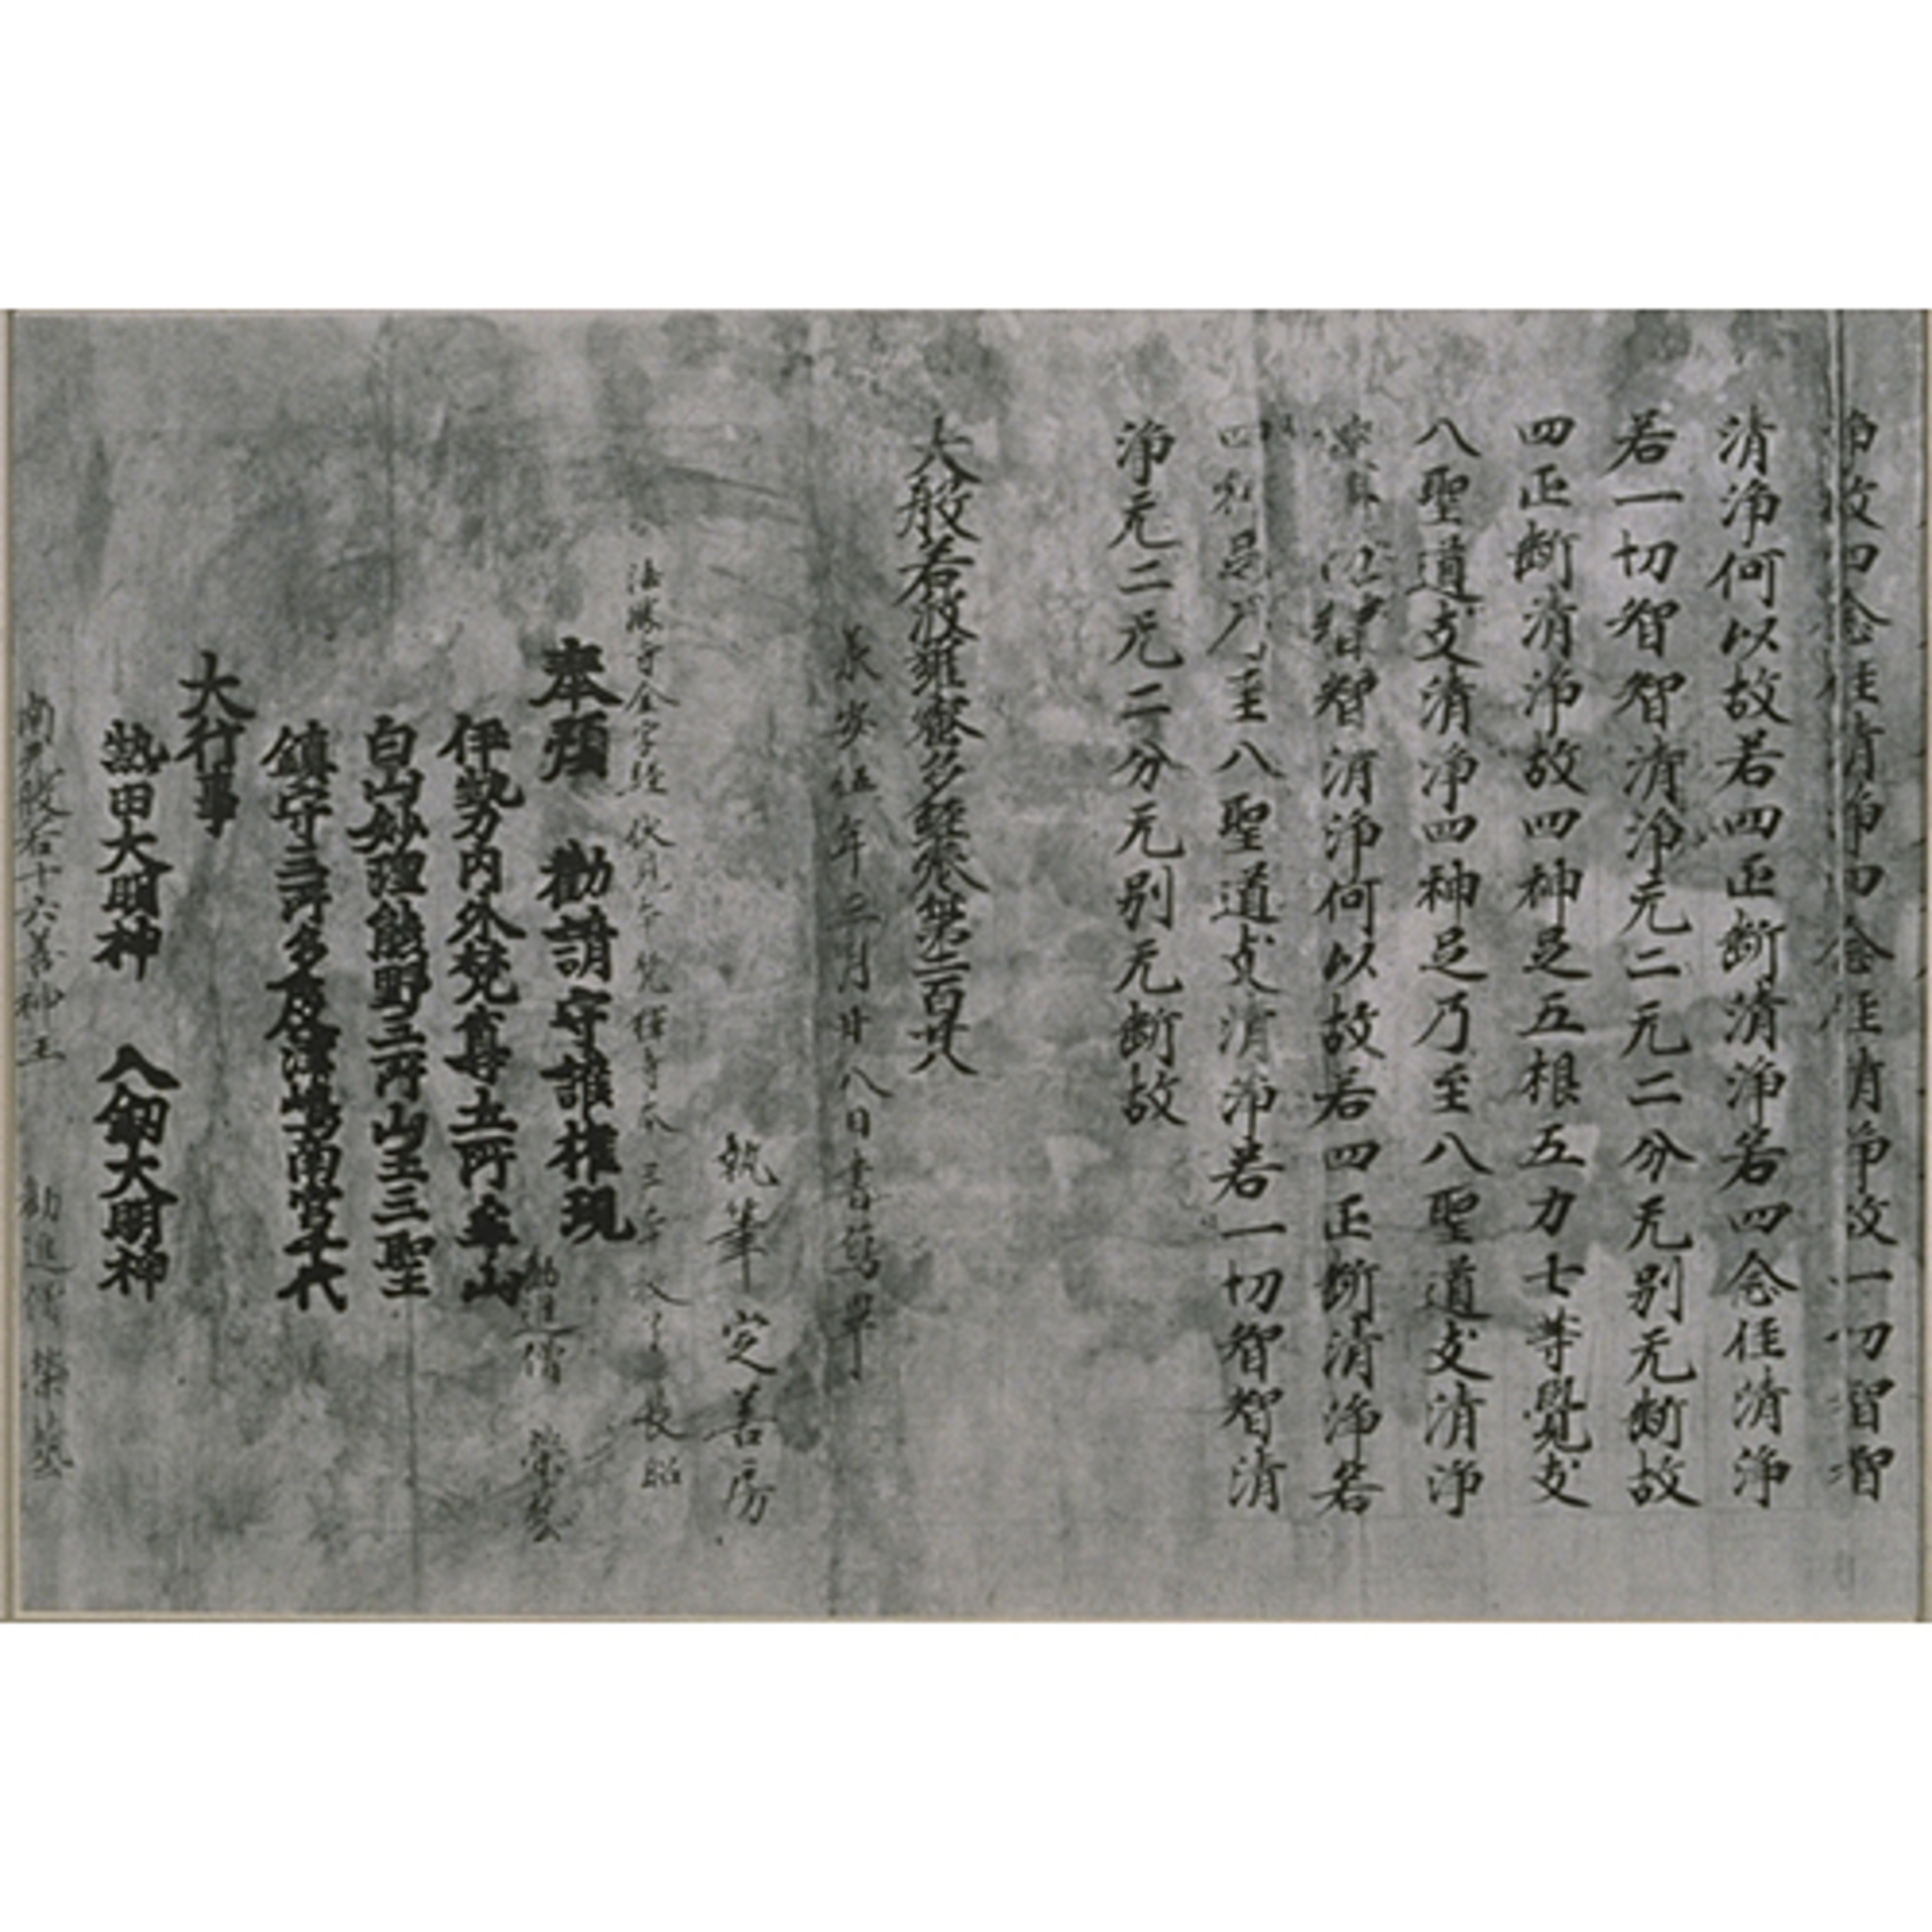 淨故四念住清淨四念住清淨故一切智智
清淨何以故若四正断清淨若四念住清淨
若一切智智清淨无二无二分无別无断故
四正断清淨故四神足五根五力七等覺支
八聖道支清淨四神足乃至八聖道支清淨
智智清淨何以故若四正断清淨若
四神足乃至八聖道支清淨若一切智智清
淨无二无二分无別无断故
大般若波羅蜜多經卷第二百廿八
承安伍年三月廿八日書寫畢
執筆 定善房
法勝寺金字経
奉須 勸請守護權現
勸進僧 榮藝
伊勢内外梵尊五所
白山妙理熊野三所山王三聖
鎮守三所多度津嶋南宮千代
大行事
熱田大明神 八釼大明神
般若十六善神王 勸進僧 榮藝